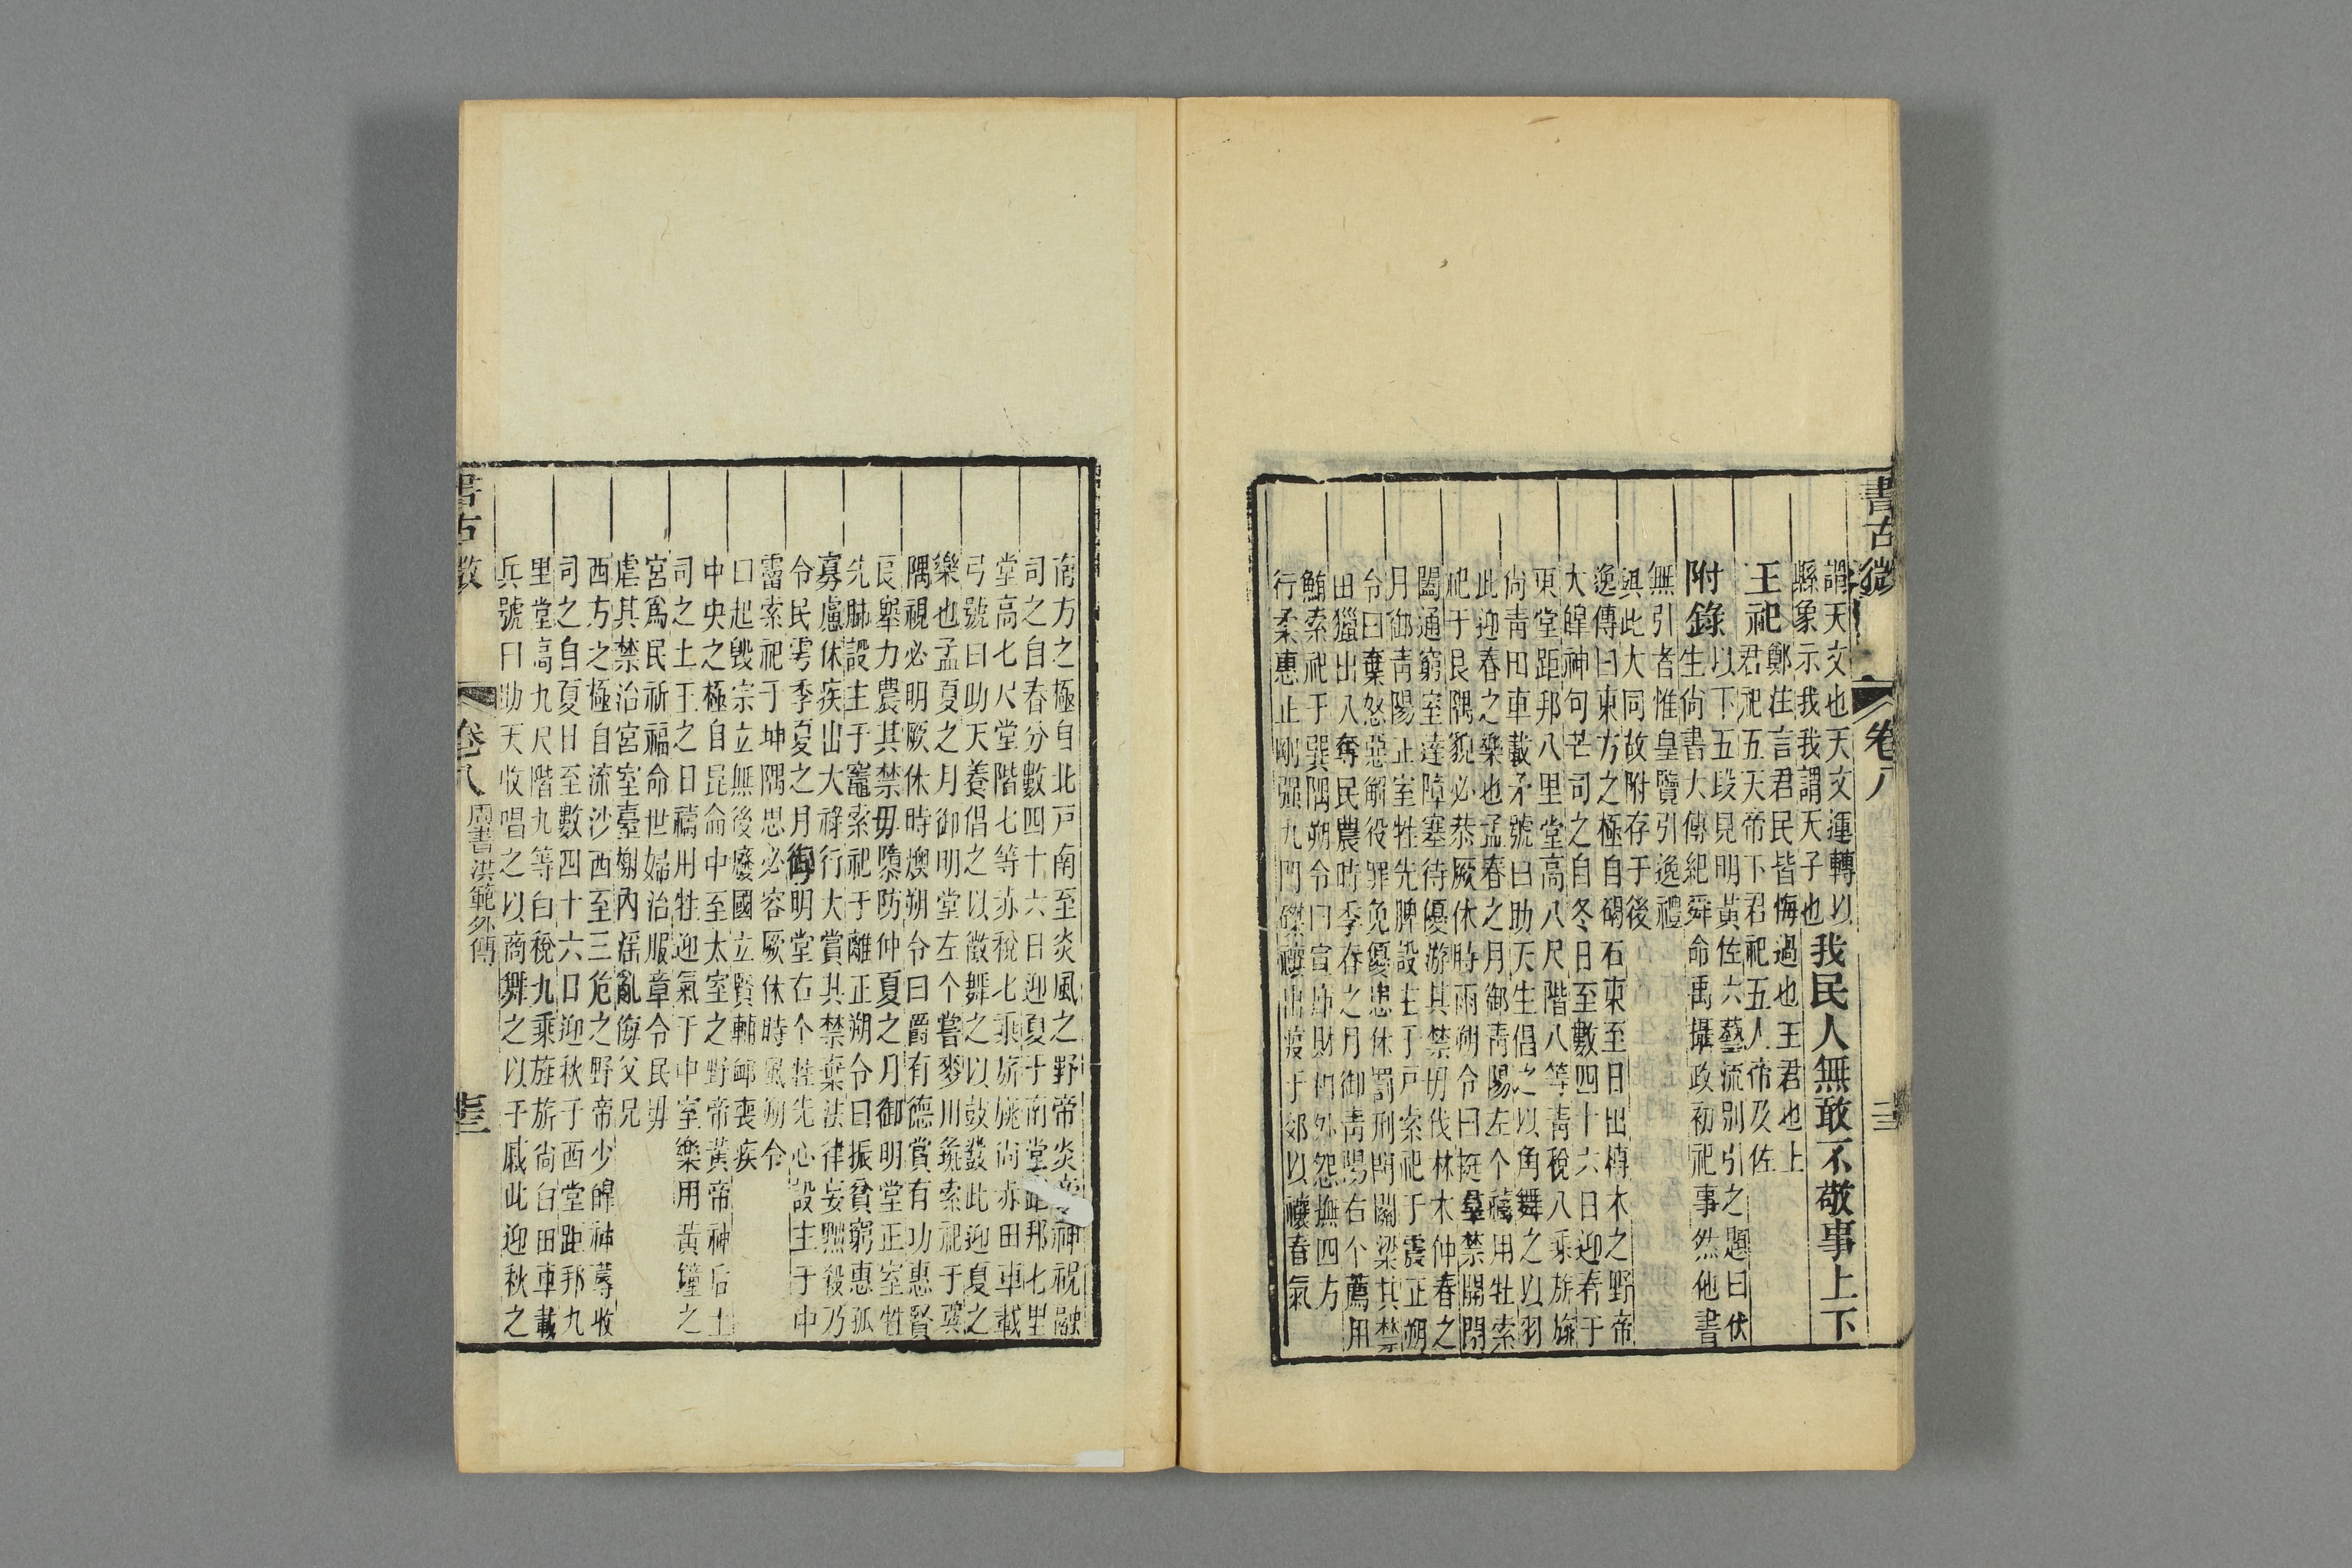 書古微
卷八
謂天文也天文運轉以
縣象示我我謂天子也
我民人無敢不敬事上下
王祀
鄭注言君民皆悔過也王君也上
君祀五天帝下君祀五人帝及佐
附錄
以下五段見明黃佐六藝流别引之題曰伏
生尚書大傳紀舜命禹攝政初祀事然他書
無引者惟皇覽引逸禮
與此大同故附存于後
逸傳曰東方之極自碣石東至日出榑木之野帝
大皥神句芒司之自冬日至數四十六日迎春于
東堂距邦八里堂高八尺階八等靑稅八乘旂旐
尚靑田車載矛號曰助天生倡之以角舞之以羽
此迎春之樂也孟春之月御靑陽左个禱用牡索
祀于艮隅貌必恭厥休時雨朔令曰挺羣禁開閉
闔通窮窒達障塞待優游其禁毋伐林木仲春之
月御靑陽正室牲先脾設主于戶索祀于震正朔
令曰棄怒惡解役罪免優患休罰刑閉關梁其禁
田獵出入奪民農時季春之月御靑陽右个薦用
鮪索祀于巽隅朔令曰宣庫財和外怨撫四方
行柔惠止剛强九門磔禳出疫于郊以禳春氣
南方之極自北戸南至炎風之野帝炎帝神祝融
司之自春分數四十六日迎夏于南堂距邦七里
堂高七尺堂階七等赤稅七乘旂旐尚赤田車載
弓號曰助天養倡之以徵舞之以鼓鼗此迎夏之
樂也孟夏之月御明堂左个嘗麥川索祀于巽
隅視必明厥休時燠朔令曰爵有德賞有功惠賢
良舉力農其禁毋隳防仲夏之月御明堂正室牲
先肺設主于竈索祀于離正朔令曰振貧窮惠孤
寡慮休疾出大祿行大賞其禁棄法律妄熙殺乃
令民雩季夏之月御明堂右个牲先心設主于中
霤索祀于坤隅思必容厥休時風朔令
曰起毀宗立無後廢國立賢輔卹喪疾
中央之極自昆侖中至太室之野帝黃帝神后土
司之土王之日禱用牲迎氣于中室樂用黃鐘之
宮爲民祈福命世婦治服章令民毋
虐其禁治宮室臺榭內淫亂侮父兄
西方之極自流沙西至三危之野帝少皥神蓐收
司之自夏日至數四十六日迎秋于西堂距邦九
里堂高九尺階九等白稅九乘旌旂尚白田車載
兵號曰助天收唱之以商舞之以干戚此迎秋之
書古微
卷八
周書洪範外傳